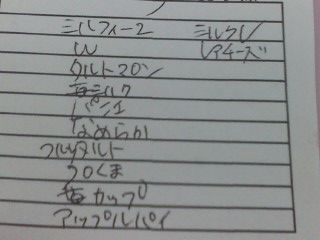 ミルフィーユ ミルクレ
W レアチーズ
タルトマロン
苺ミルク
パンチ
なめらか
フルーツタルト
クロくま
苺カップ
アップルパイ